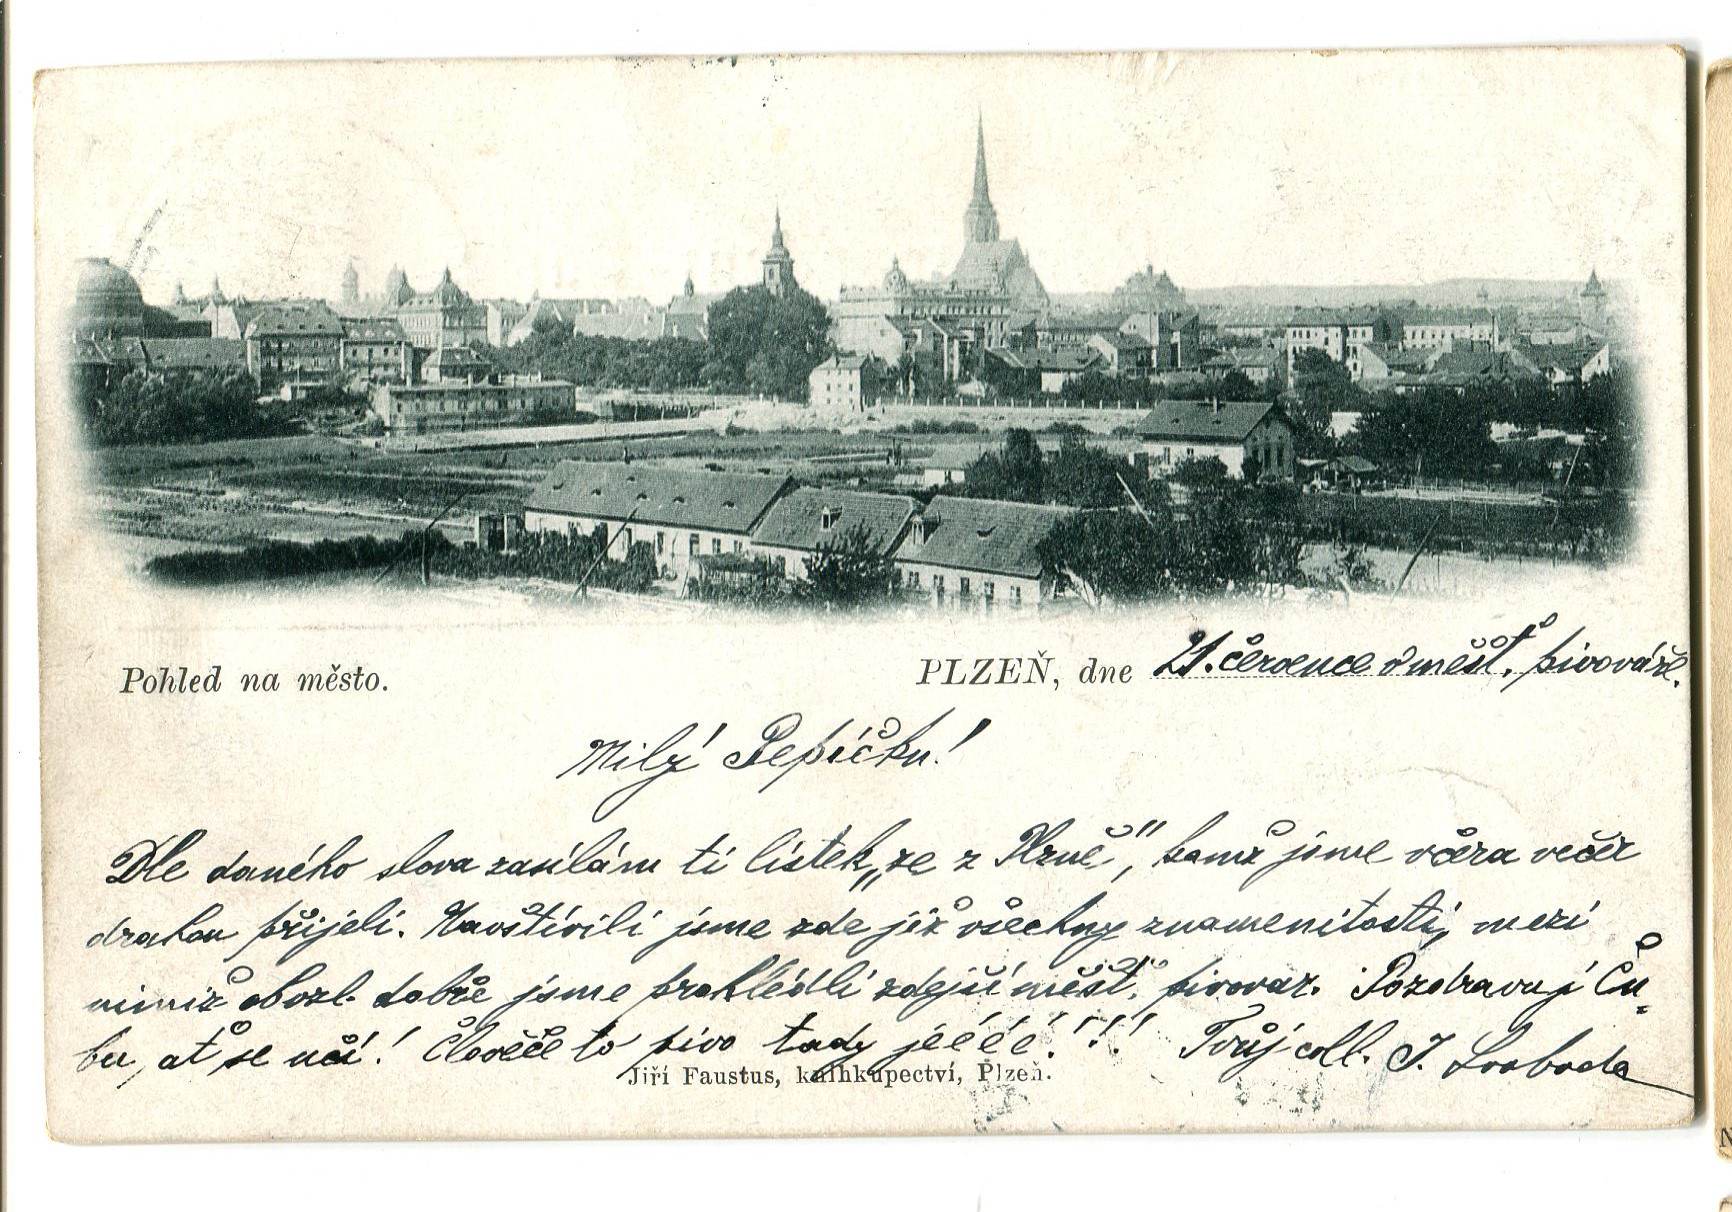 Pohled na město.
PLZEŇ, dne 21. července v měšť. pivováře.
Milý Pepíčku!
Dle daného slova zasílám ti lístek „ze z Plzně“, kamž jsme včera večer
drahou přijeli. Navštívili jsme zde již všechny znamenitosti, mezi
nimiž obzl. dobře jsme prohlédli zdejší měšť. pivovar. Pozdravuj Ču-
bu, ať se učí! Člověče to pivo tady jéééé!!!! Tvůj coll. J. Svoboda
Jiří Faustus, knihkupectví, Plzeň.